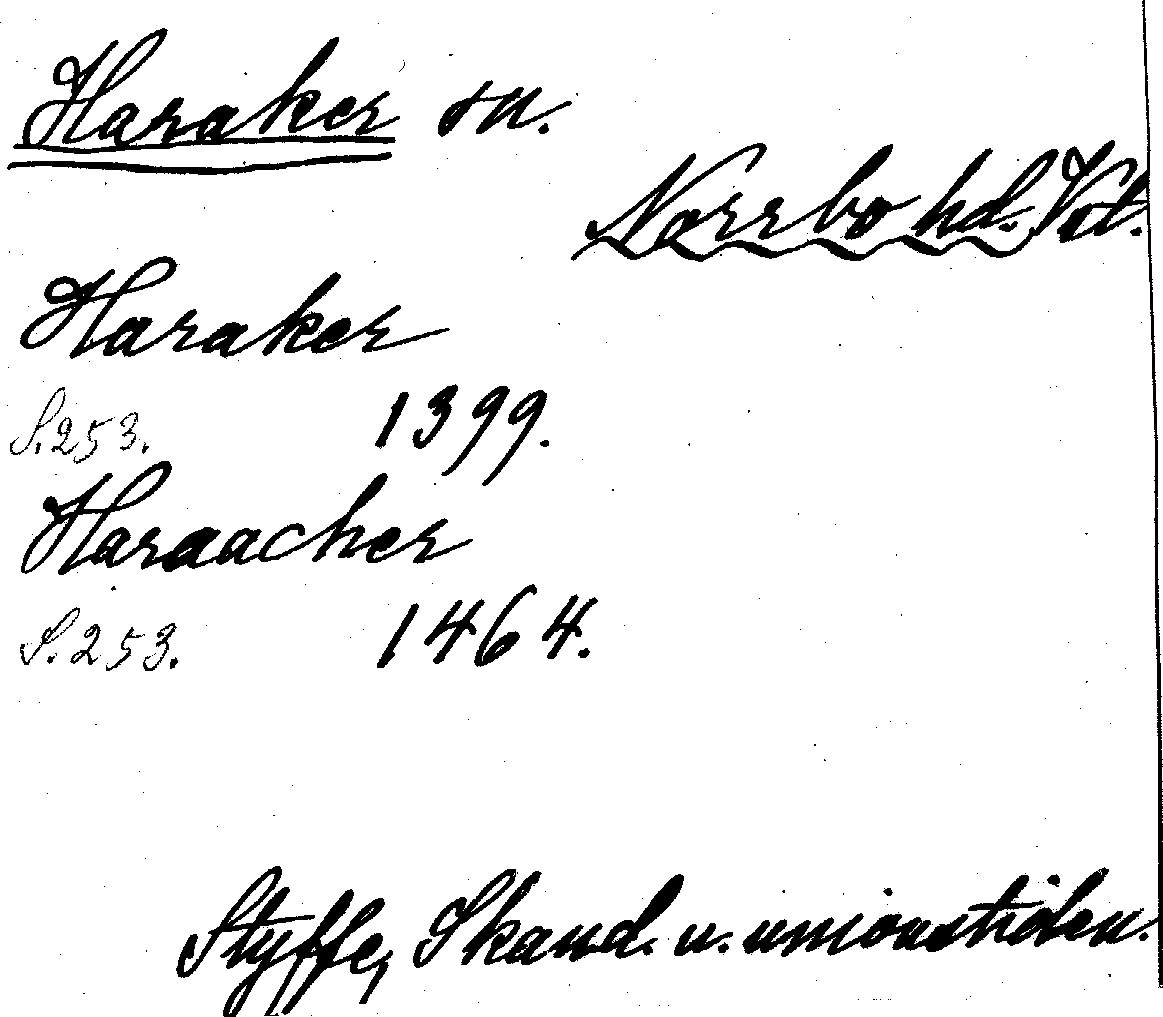 Haraker sn.
Norrbo hd. Vstm.
Haraker
S. 253. 1399.
Haraacher
S. 253. 1464.
Styffe, Skand. u. unionstiden.